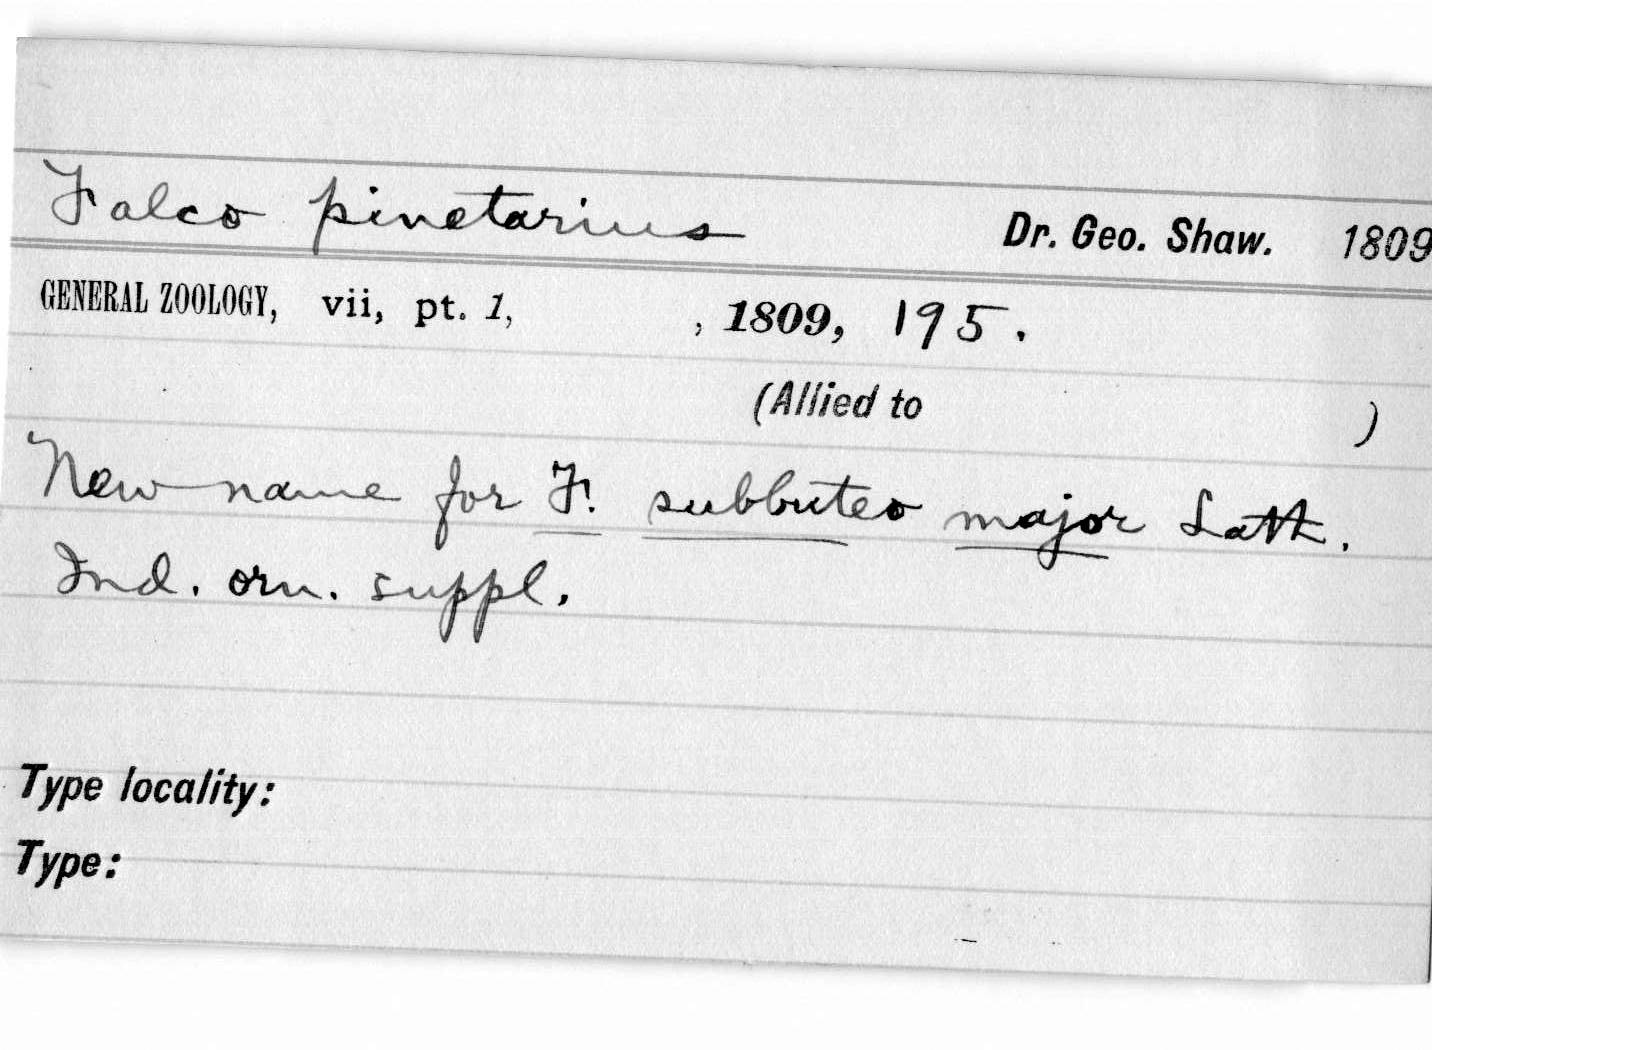 Falco pinetarius Dr. Geo. Shaw. 1809
GENERAL ZOOLOGY, vii, pt. 1, , 1809, 195.
(Allied to )
New name for F. subbuteo major Lath.
Ind. orn. suppl.
Type locality:
Type: